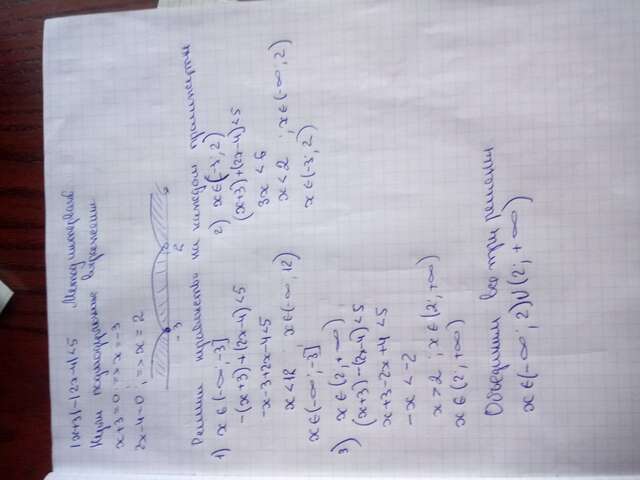 |x+3|-|2x-4|<5 Метод интервалов
Нули подмодульных выражений
x+3=0; => x=-3
2x-4=0; => x=2
-3 2
Решим неравенство на каждом промежутке
1) x∈(-∞; -3]
-(x+3)+(2x-4)<5
-x-3+2x-4<5
x<12 x∈(-∞; 12)
x∈(-∞; -3]
2) x∈(-3; 2)
(x+3)+(2x-4)<5
3x<6
x<2 ; x∈(-∞; 2)
x∈(-3; 2)
3) x∈(2; +∞)
(x+3)-(2x-4)<5
x+3-2x+4<5
-x<-2
x>2 ; x∈(2; +∞)
x∈(2; +∞)
Объединим все три решения
x∈(-∞; 2)∪(2; +∞)